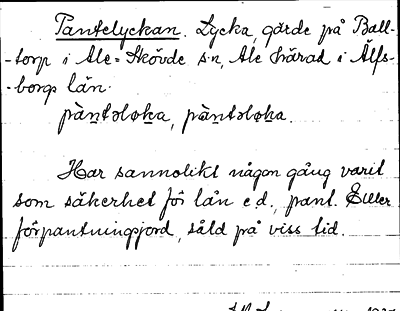 Pantelyckan. Lycka, gärde på Ball-
-torp i Ale-Skövde s:n, Ale härad i Älfs-
-borgs län.
pàntəloka, pàntəloka.
Har sannolikt någon gång varit
som säkerhet för lån e.d., pant. Eller
förpantningsjord, såld på viss tid.